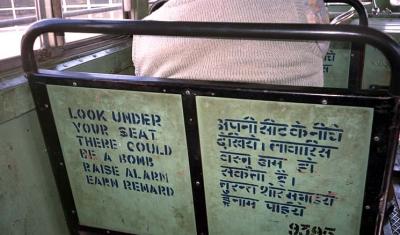 LOOK UNDER
YOUR SEAT
THERE COULD
BE A BOMB
RAISE ALARM
EARN REWARD
अपनी सीट के नीचे
देखिये। लावारिस
वस्तु बम हो
सकता है।
तुरन्त शोर मचाइये
ईनाम पाइये
9395